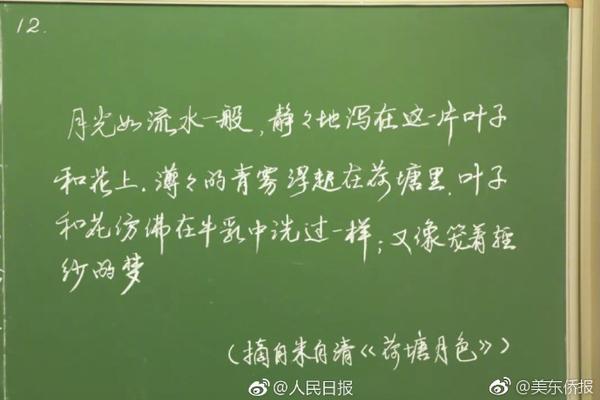 12.
月光如流水一般,静々地泻在这一片叶子
和花上.薄々的青雾浮起在荷塘里.叶子
和花仿佛在牛乳中洗过一样;又像笼着轻
纱的梦
(摘自朱自清《荷塘月色》)
@人民日报
@美东侨报